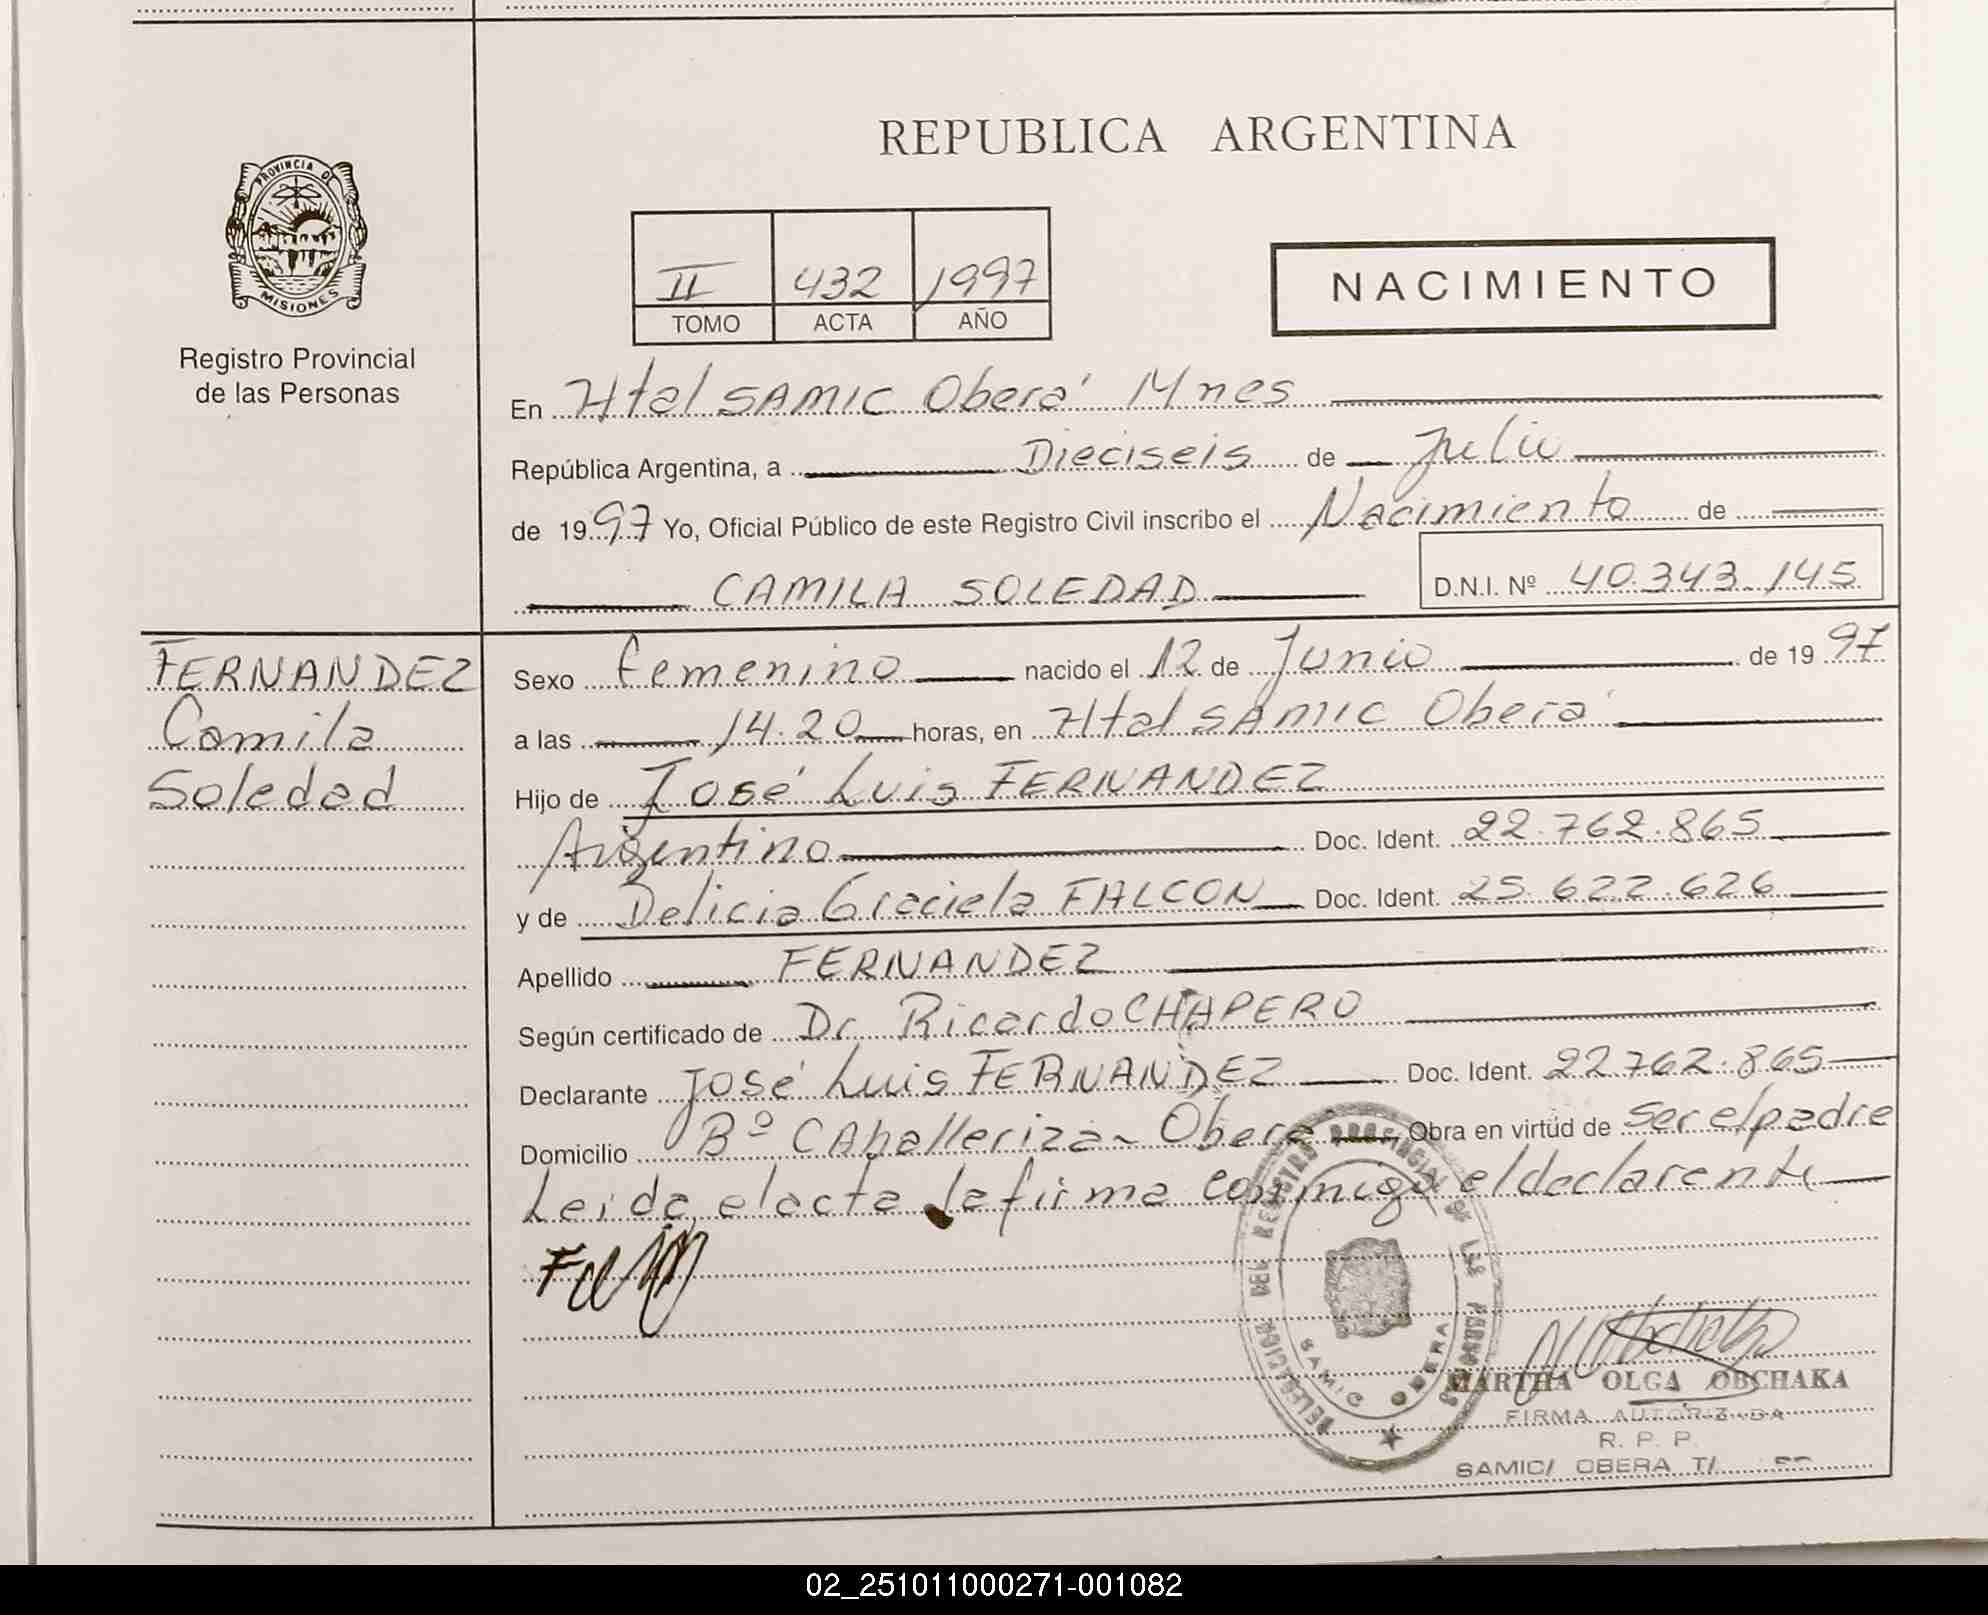 REPUBLICA ARGENTINA
PROVINCIA DE
MISIONES
Registro Provincial
de las Personas
II 432 1997
TOMO ACTA AÑO
NACIMIENTO
En Htal SAMIC Oberá Mnes
República Argentina, a Dieciseis de Julio
de 1997 Yo, Oficial Público de este Registro Civil inscribo el Nacimiento de
CAMILA SOLEDAD D.N.I. Nº 40.343.145
FERNANDEZ
Camila
Soledad
Sexo femenino nacido el 12 de Junio de 1997
a las 14.20 horas, en Htal SAMIC Oberá
Hijo de José Luis FERNANDEZ
Argentino Doc. Ident. 22.762.865
y de Delicia Graciela FALCON Doc. Ident. 25.622.626
Apellido FERNANDEZ
Según certificado de Dr Ricardo CHAPERO
Declarante José Luis FERNANDEZ Doc. Ident. 22.762.865
Domicilio Bº CAballeriza - Obera Obra en virtud de ser el padre
Leida el acta la firma conmigo el declarente
DELEGACION DEL REGISTRO PROVINCIAL DE LAS PERSONAS
SAMIC OBERA
MARTHA OLGA OBCHAKA
FIRMA AUTORIZADA
R. P. P.
SAMIC/ OBERA T/
02_251011000271-001082